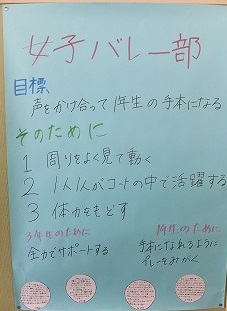 女子バレー部
目標
声をかけ合って1年生の手本になる
そのために
1 周りをよく見て動く
2 1人1人がコートの中で活躍する
3 体力をもどす
3年生のために
全力でサポートする
1年生のために
手本になれるように
プレーをみがく